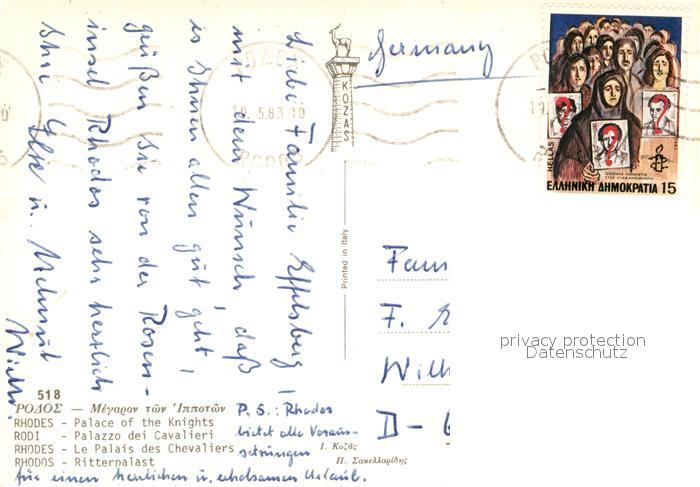 Liebe Familie Effelsberg!
mit dem Wunsch, daß
es Ihnen allen gut geht,
grüßen Sie von der Rosen-
insel Rhodos sehr herzlich
Ihre Ilse u. Helmut
P.S.: Rhodos
bietet alle Voraus-
setzungen
für einen herrlichen u. erholsamen Urlaub.
518
ΡΟΔΟΣ — Μέγαρον τῶν Ἱπποτῶν
RHODES - Palace of the Knights
RODI - Palazzo dei Cavalieri
RHODES - Le Palais des Chevaliers
RHODOS - Ritterpalast
Ι. Κοζᾶς
Π. Σακελλαρίδης
KOZAS
Printed in Italy
Germany
ΡΟΔΟΣ
10.5.83 10
RODOS
HELLAS
ΕΛΛΗΝΙΚΗ ΔΗΜΟΚΡΑΤΙΑ 15
Fam
F.
Wilh
D-6
privacy protection
Datenschutz